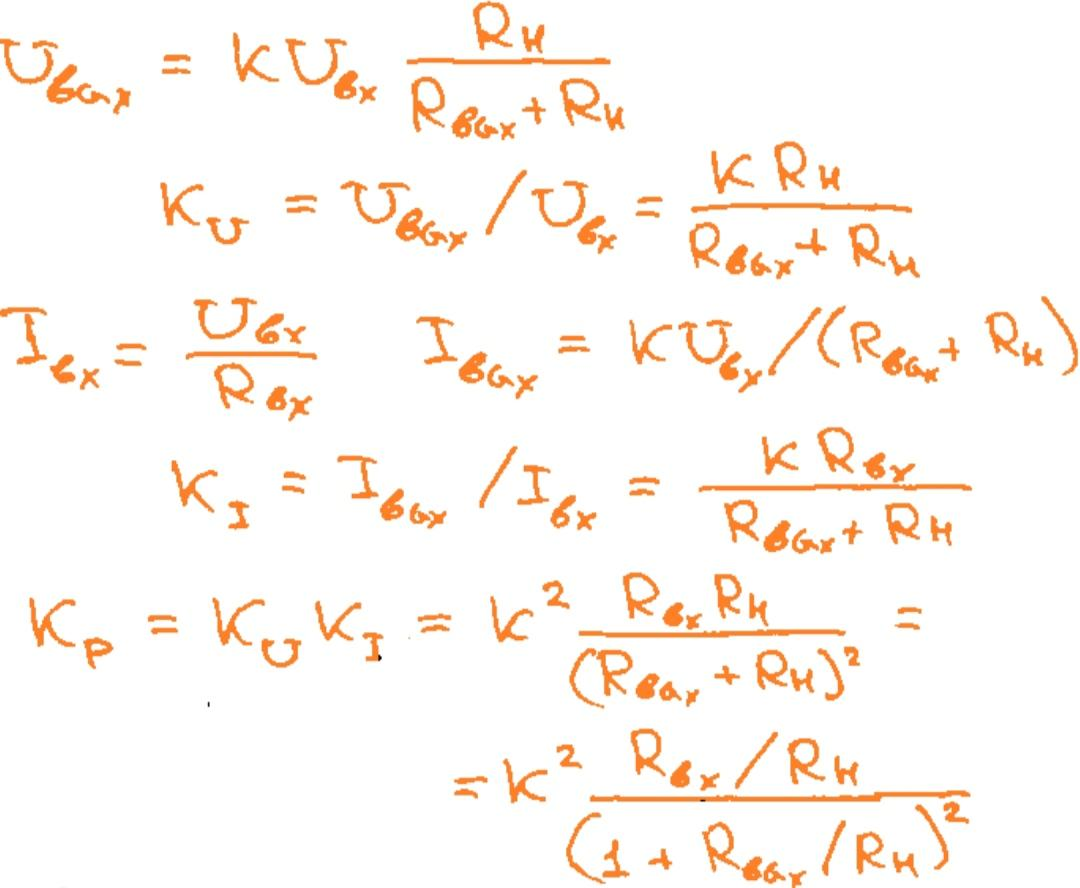 U_вых = K U_вх R_н / (R_вых + R_н)
K_U = U_вых / U_вх = K R_н / (R_вых + R_н)
I_вх = U_вх / R_вх   I_вых = K U_вх / (R_вых + R_н)
K_I = I_вых / I_вх = K R_вх / (R_вых + R_н)
K_P = K_U K_I = K² R_вх R_н / (R_вых + R_н)² =
= K² (R_вх / R_н) / (1 + R_вых / R_н)²